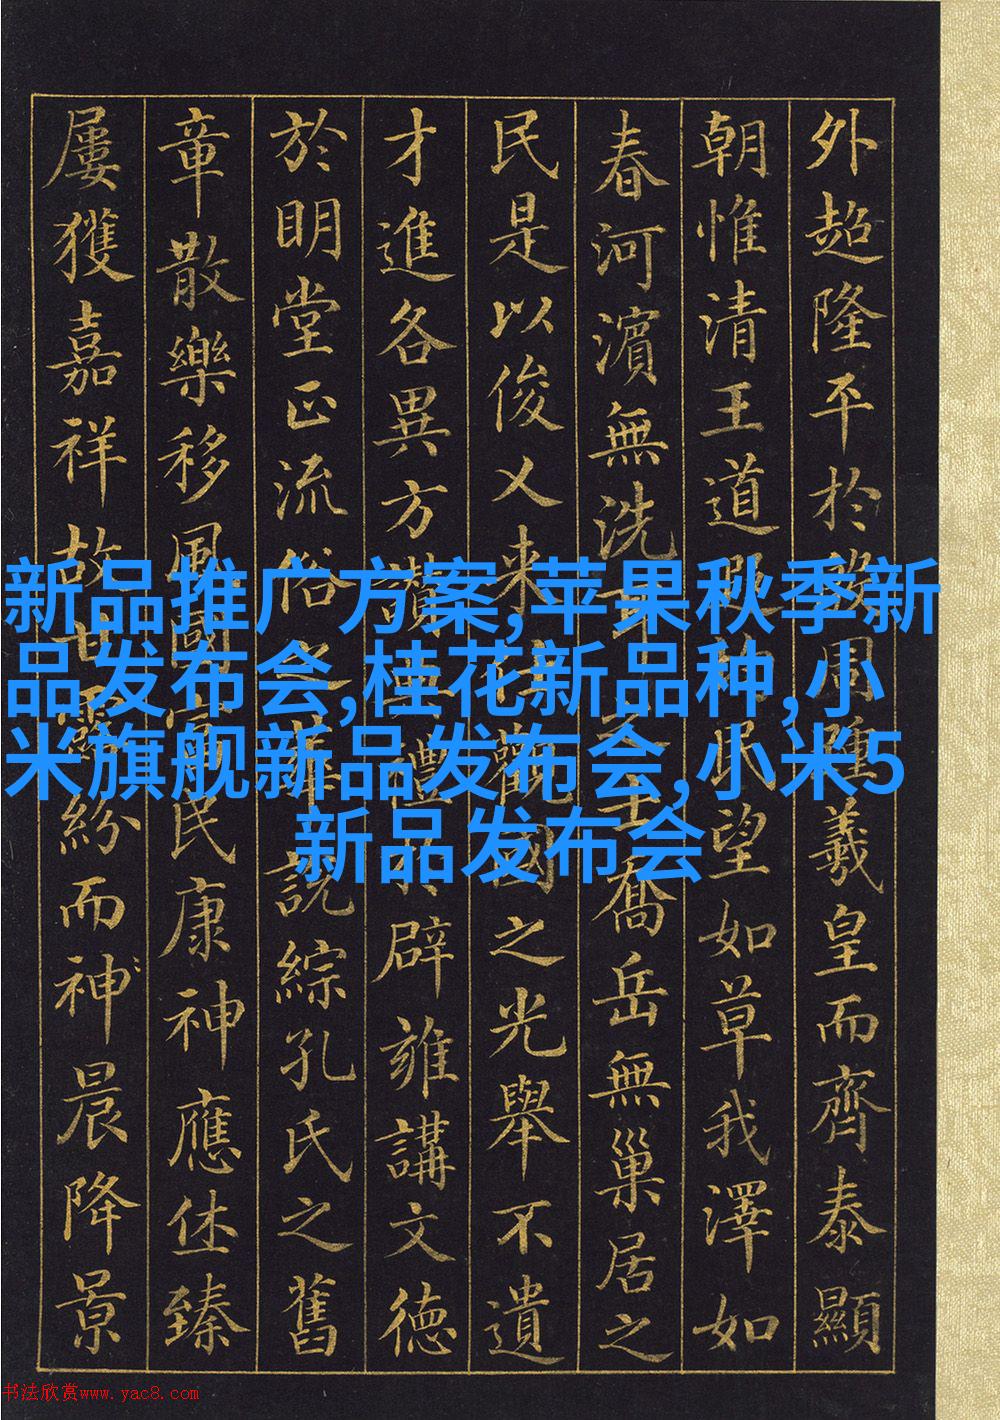 外超隆平於殷周踵羲皇而齊泰顯
朝惟清王道遐均民望如草我澤如
春河濱無洗耳之士喬岳無巢居之
民是以俊乂来仕觀國之光舉不遺
才進各異方讚典禮於辟雍講文德
於明堂正流俗之華說綜孔氏之舊
章散樂移風國富民康神應休臻
屢獲嘉祥故甘露紛而神晨降景
新品推广方案,苹果秋季新
品发布会,桂花新品种,小
米旗舰新品发布会,小米5
新品发布会
书法欣赏www.yac8.com